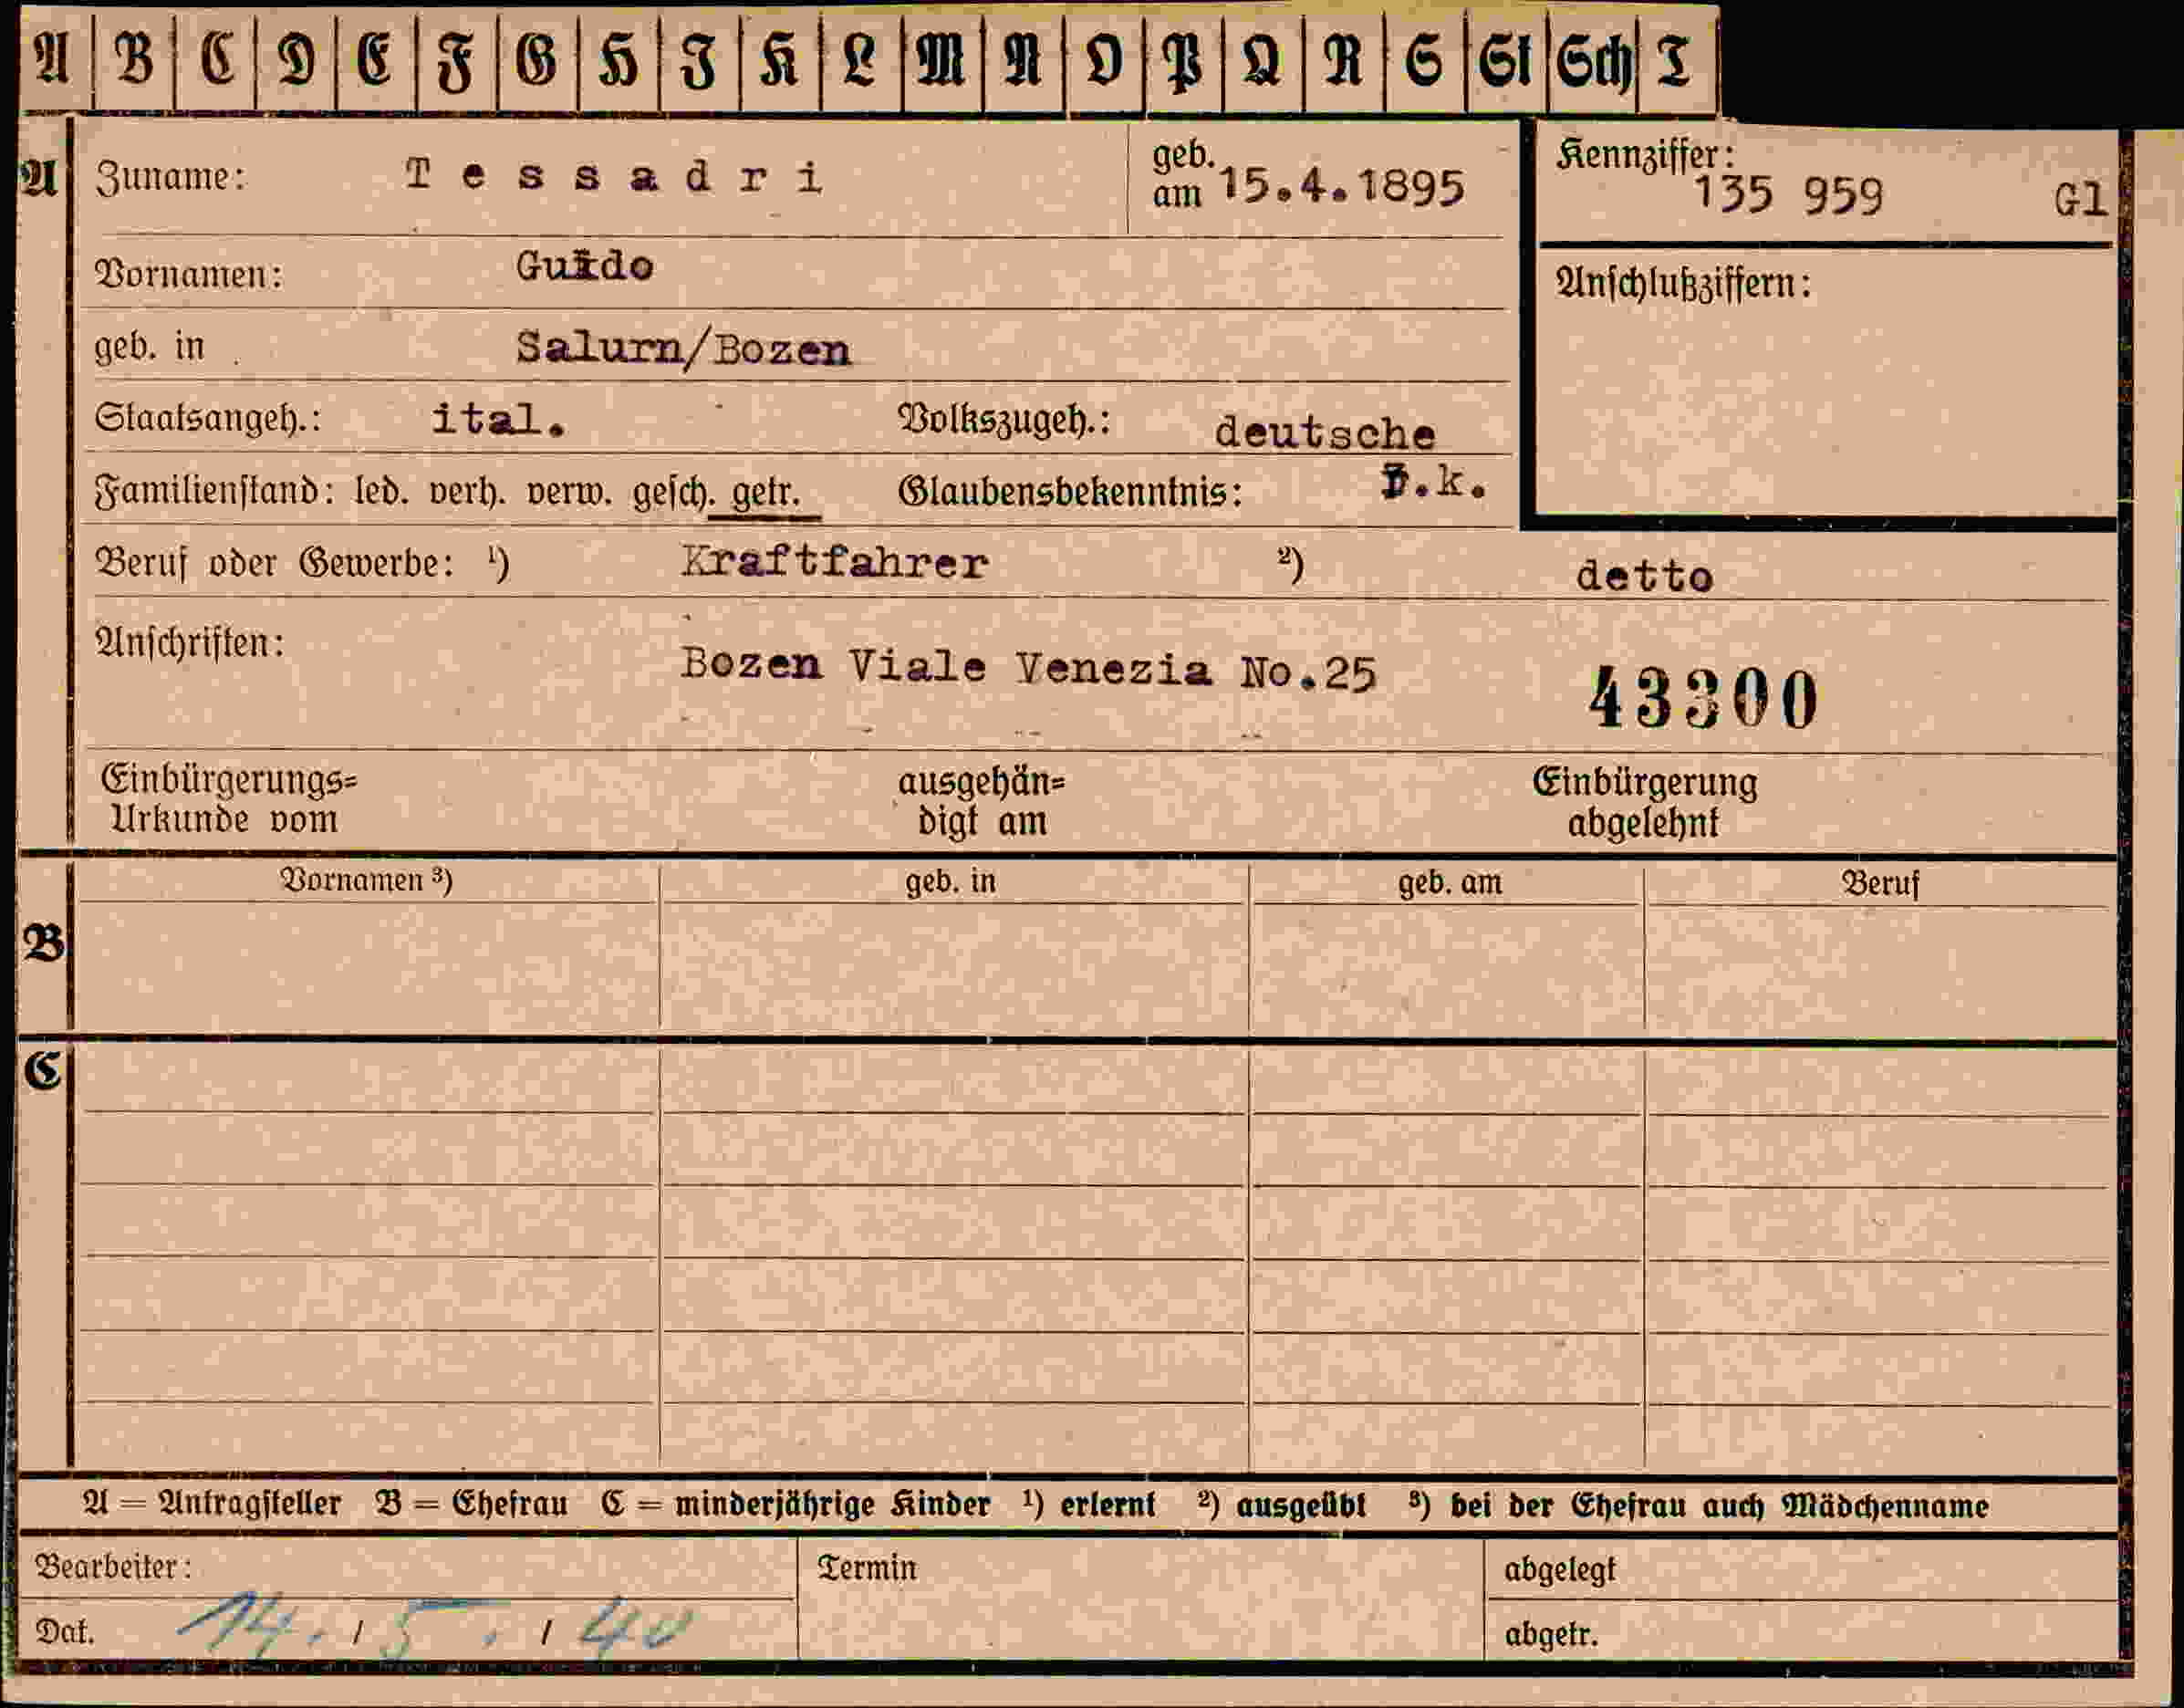 A B C D E F G H J K L M N O P Q R S St Sch T
A Zuname: Tessadri geb. am 15.4.1895 Kennziffer: 135 959 Gl
Vornamen: Guido Anschlußziffern:
geb. in Salurn/Bozen
Staatsangeh.: ital. Volkszugeh.: deutsche
Familienstand: led. verh. verw. gesch. getr. Glaubensbekenntnis: .k.
Beruf oder Gewerbe: ¹) Kraftfahrer ²) detto
Anschriften: Bozen Viale Venezia No.25 43300
Einbürgerungs= ausgehän= Einbürgerung
Urkunde vom digt am abgelehnt
Vornamen ³) geb. in geb. am Beruf
B
C
A = Antragsteller B = Ehefrau C = minderjährige Kinder ¹) erlernt ²) ausgeübt ³) bei der Ehefrau auch Mädchenname
Bearbeiter: Termin abgelegt
Dat. 14. / 5. / 40 abgetr.